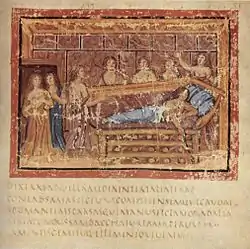 DIXERATATQUEILLAMMEDIAINTERTALIAFERRO
CONLAPSAMASPICIUNTCOMITESENSEMQUECRUORE
SPUMANTEMSPARSASQUEMANUSITCLAMORADALTA
ATRIACONCUSSAMBACCHATURFAMAPERURBEM
LAMENTISGEMITUQUEETFEMINEOULULATU